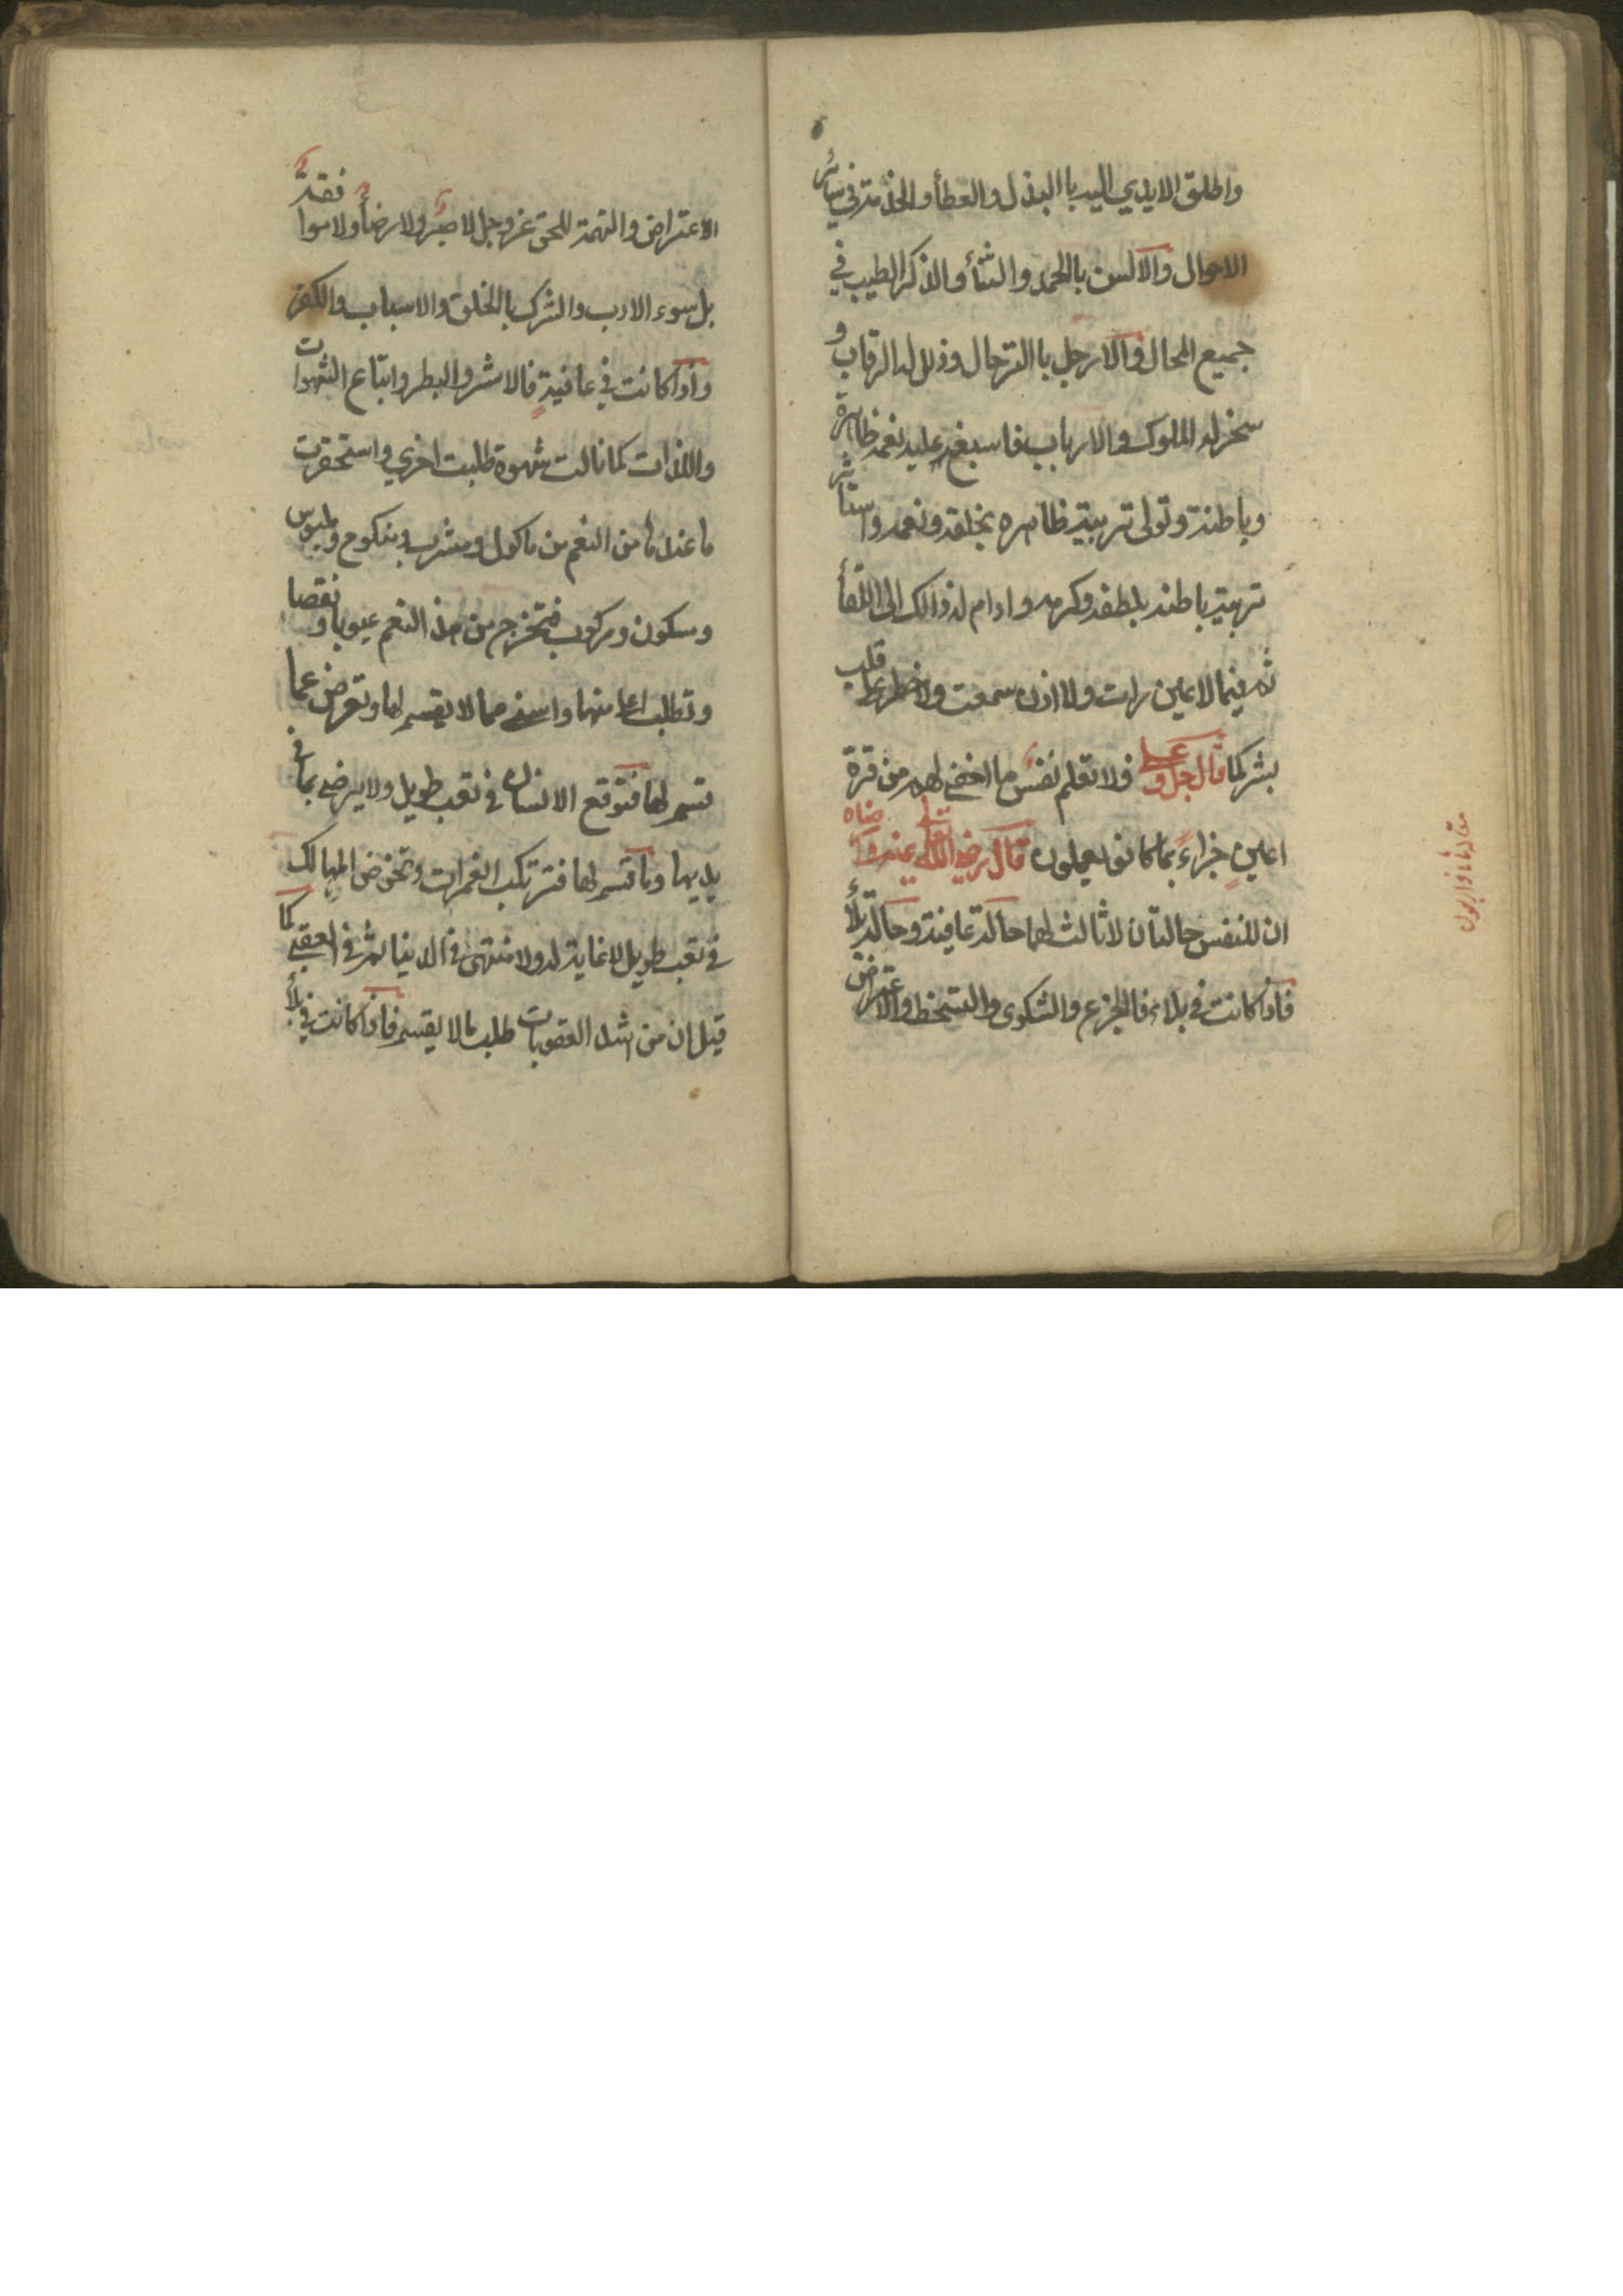 واطلق الايدي اليه باالبذل والعطأ والخذمة في سائر
الاحوال والالسن بالحمد والثنأ والذكر الطيب في
جميع المحال والارجل باالترحال وذلل له الرقاب و
سخر له الملوك والارباب فاسبغ عليه نعمه ظاهرة
وباطنة وتولى تربية ظاهره بخلقه ونعمه واستاثر
تربية باطنه بلطفه وكرمه وادام له ذالك الى اللقأ
ثم فيما لا عين رات ولا اذن سمعت ولا خطر على قلب
بشر كما قال جل وعلى فلا تعلم نفس ما اخفي لهم من قرة
اعين جزاءً بما كانوا يعملون قال رضي الله تعالى عنه وارضاه
ان للنفس حالتان لا ثالث لهما حالة عافية وحالة بلأ
فاذا كانت في بلاء فالجزع والشكوى والتسخط والاعتراض
مقاله
الاعتراض والتهمة للحق عز وجل لا صبر ولا رضأ ولا موافقة
بل سوء الادب والشرك بالخلق والاسباب والكفر
واذا كانت في عافية فالاشر والبطر واتباع الشهوات
واللذات كما نالت شهوة طلبت اخري واستحقرت
ما عندها من النعم من ماكول ومشرب ومنكوح وملبوس
ومسكون ومركوب فتخرج من هذه النعم عيوبا ونقصا
وتطلب اعلا منها واسنى مما لا يقسم لها وتعرض عما
قسم لها فتوقع الانسان في تعب طويل ولا يرضى بما في
يديها وما قسم لها فترتكب الغمرات وتخوض المهالك
في تعب طويل لا غاية له ولا منتهى في الدنيا ثم في العقبى كما
قيل ان من اشد العقوبات طلب ما لا يقسم فاذا كانت في بلأ